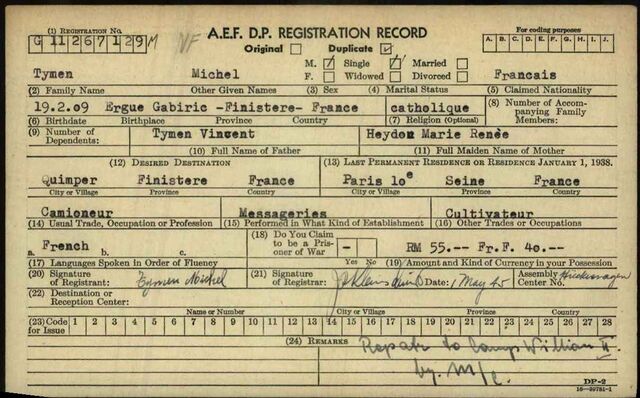 (1) REGISTRATION NO.
G 11267129 M
VF
A.E.F. D.P. REGISTRATION RECORD
Original Duplicate
For coding purposes
A. B. C. D. E. F. G. H. I. J.
M. Single Married
F. Widowed Divorced
Tymen Michel Francais
(2) Family Name Other Given Names (3) Sex (4) Marital Status (5) Claimed Nationality
19.2.09 Ergue Gabiric -Finistere- France catholique
(6) Birthdate Birthplace Province Country (7) Religion (Optional)
(8) Number of Accompanying Family Members:
(9) Number of Dependents:
Tymen Vincent Heydon Marie Renée
(10) Full Name of Father (11) Full Maiden Name of Mother
(12) DESIRED DESTINATION (13) LAST PERMANENT RESIDENCE OR RESIDENCE JANUARY 1, 1938.
Quimper Finistere France Paris 10e Seine France
City or Village Province Country City or Village Province Country
Camioneur Messageries Cultivateur
(14) Usual Trade, Occupation or Profession (15) Performed in What Kind of Establishment (16) Other Trades or Occupations
a. French b. c.
(17) Languages Spoken in Order of Fluency
(18) Do You Claim to be a Prisoner of War
-
Yes No
RM 55.-- Fr.F 40.--
(19) Amount and Kind of Currency in your Possession
(20) Signature of Registrant: Tymen Michel
(21) Signature of Registrar:
Date: 1 May 45
Assembly Center No.
(22) Destination or Reception Center:
Name or Number City or Village Province Country
(23) Code for Issue 1 2 3 4 5 6 7 8 9 10 11 12 13 14 15 16 17 18 19 20 21 22 23 24 25 26 27 28
(24) REMARKS
to Camp William II
by M/c.
DP-2
16-39781-1